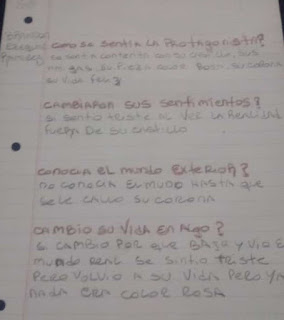 como se sentia la Protagonista?
se sentia contenta con su castillo, sus
su Pieza color Rosa, su corona
su vida feliz
CAMBIARON SUS SENTIMIENTOS?
si sentio triste al ver la realidad
fuera De su castillo
CONOCIA EL MUNDO EXTERIOR?
no conocia el mundo hasta que
se le callo su corona
CAMBIO SU VIDA EN ALGO?
si cambio por que bajo y vio el
mundo real se sintio triste
Pero volvio a su vida Pero ya
nada era color rosa